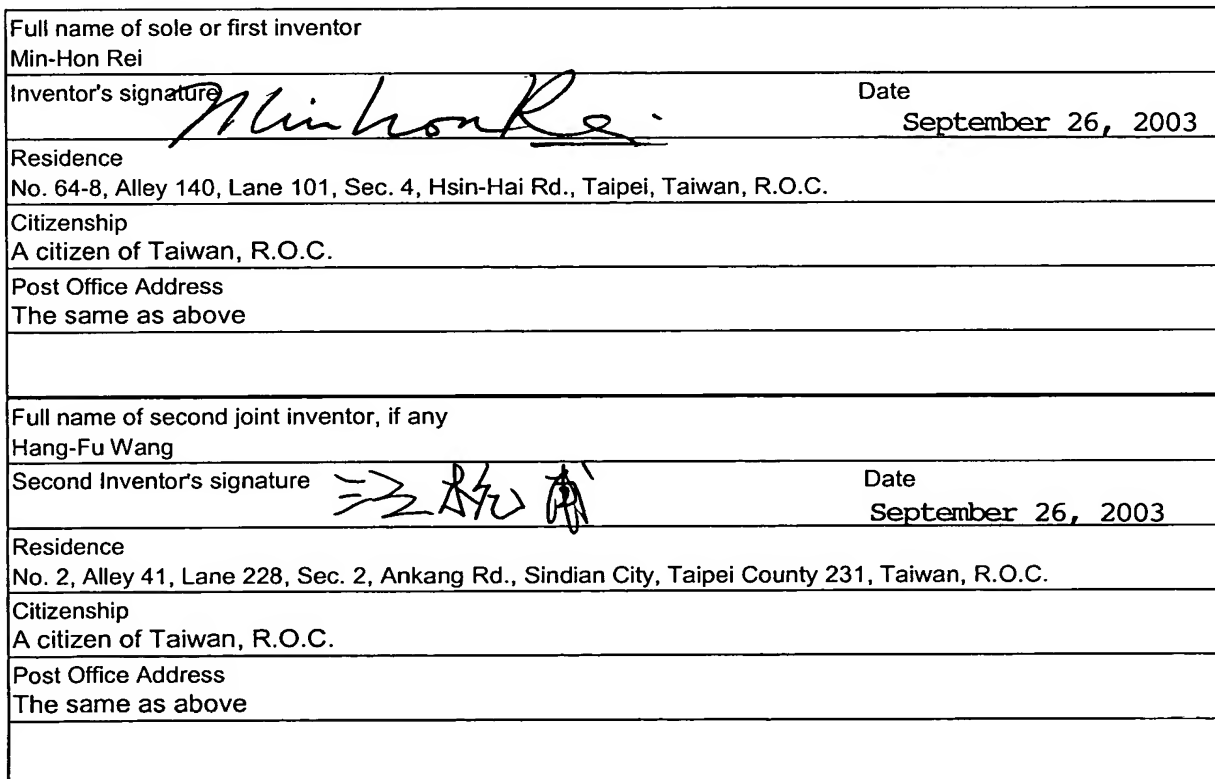 Full name of sole or first inventor
Min-Hon Rei
Inventor's signature Minhon Rei Date
September 26, 2003
Residence
No. 64-8, Alley 140, Lane 101, Sec. 4, Hsin-Hai Rd., Taipei, Taiwan, R.O.C.
Citizenship
A citizen of Taiwan, R.O.C.
Post Office Address
The same as above
Full name of second joint inventor, if any
Hang-Fu Wang
Second Inventor's signature Date
September 26, 2003
Residence
No. 2, Alley 41, Lane 228, Sec. 2, Ankang Rd., Sindian City, Taipei County 231, Taiwan, R.O.C.
Citizenship
A citizen of Taiwan, R.O.C.
Post Office Address
The same as above